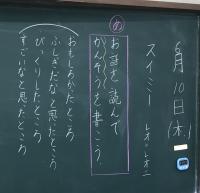 6月10日(木)
スイミー レオ=レオニ
め
お話を読んで
かんそうを書こう。
おもしろかったところ
ふしぎだなと思ったところ
びっくりしたところ
すごいなと思ったところ